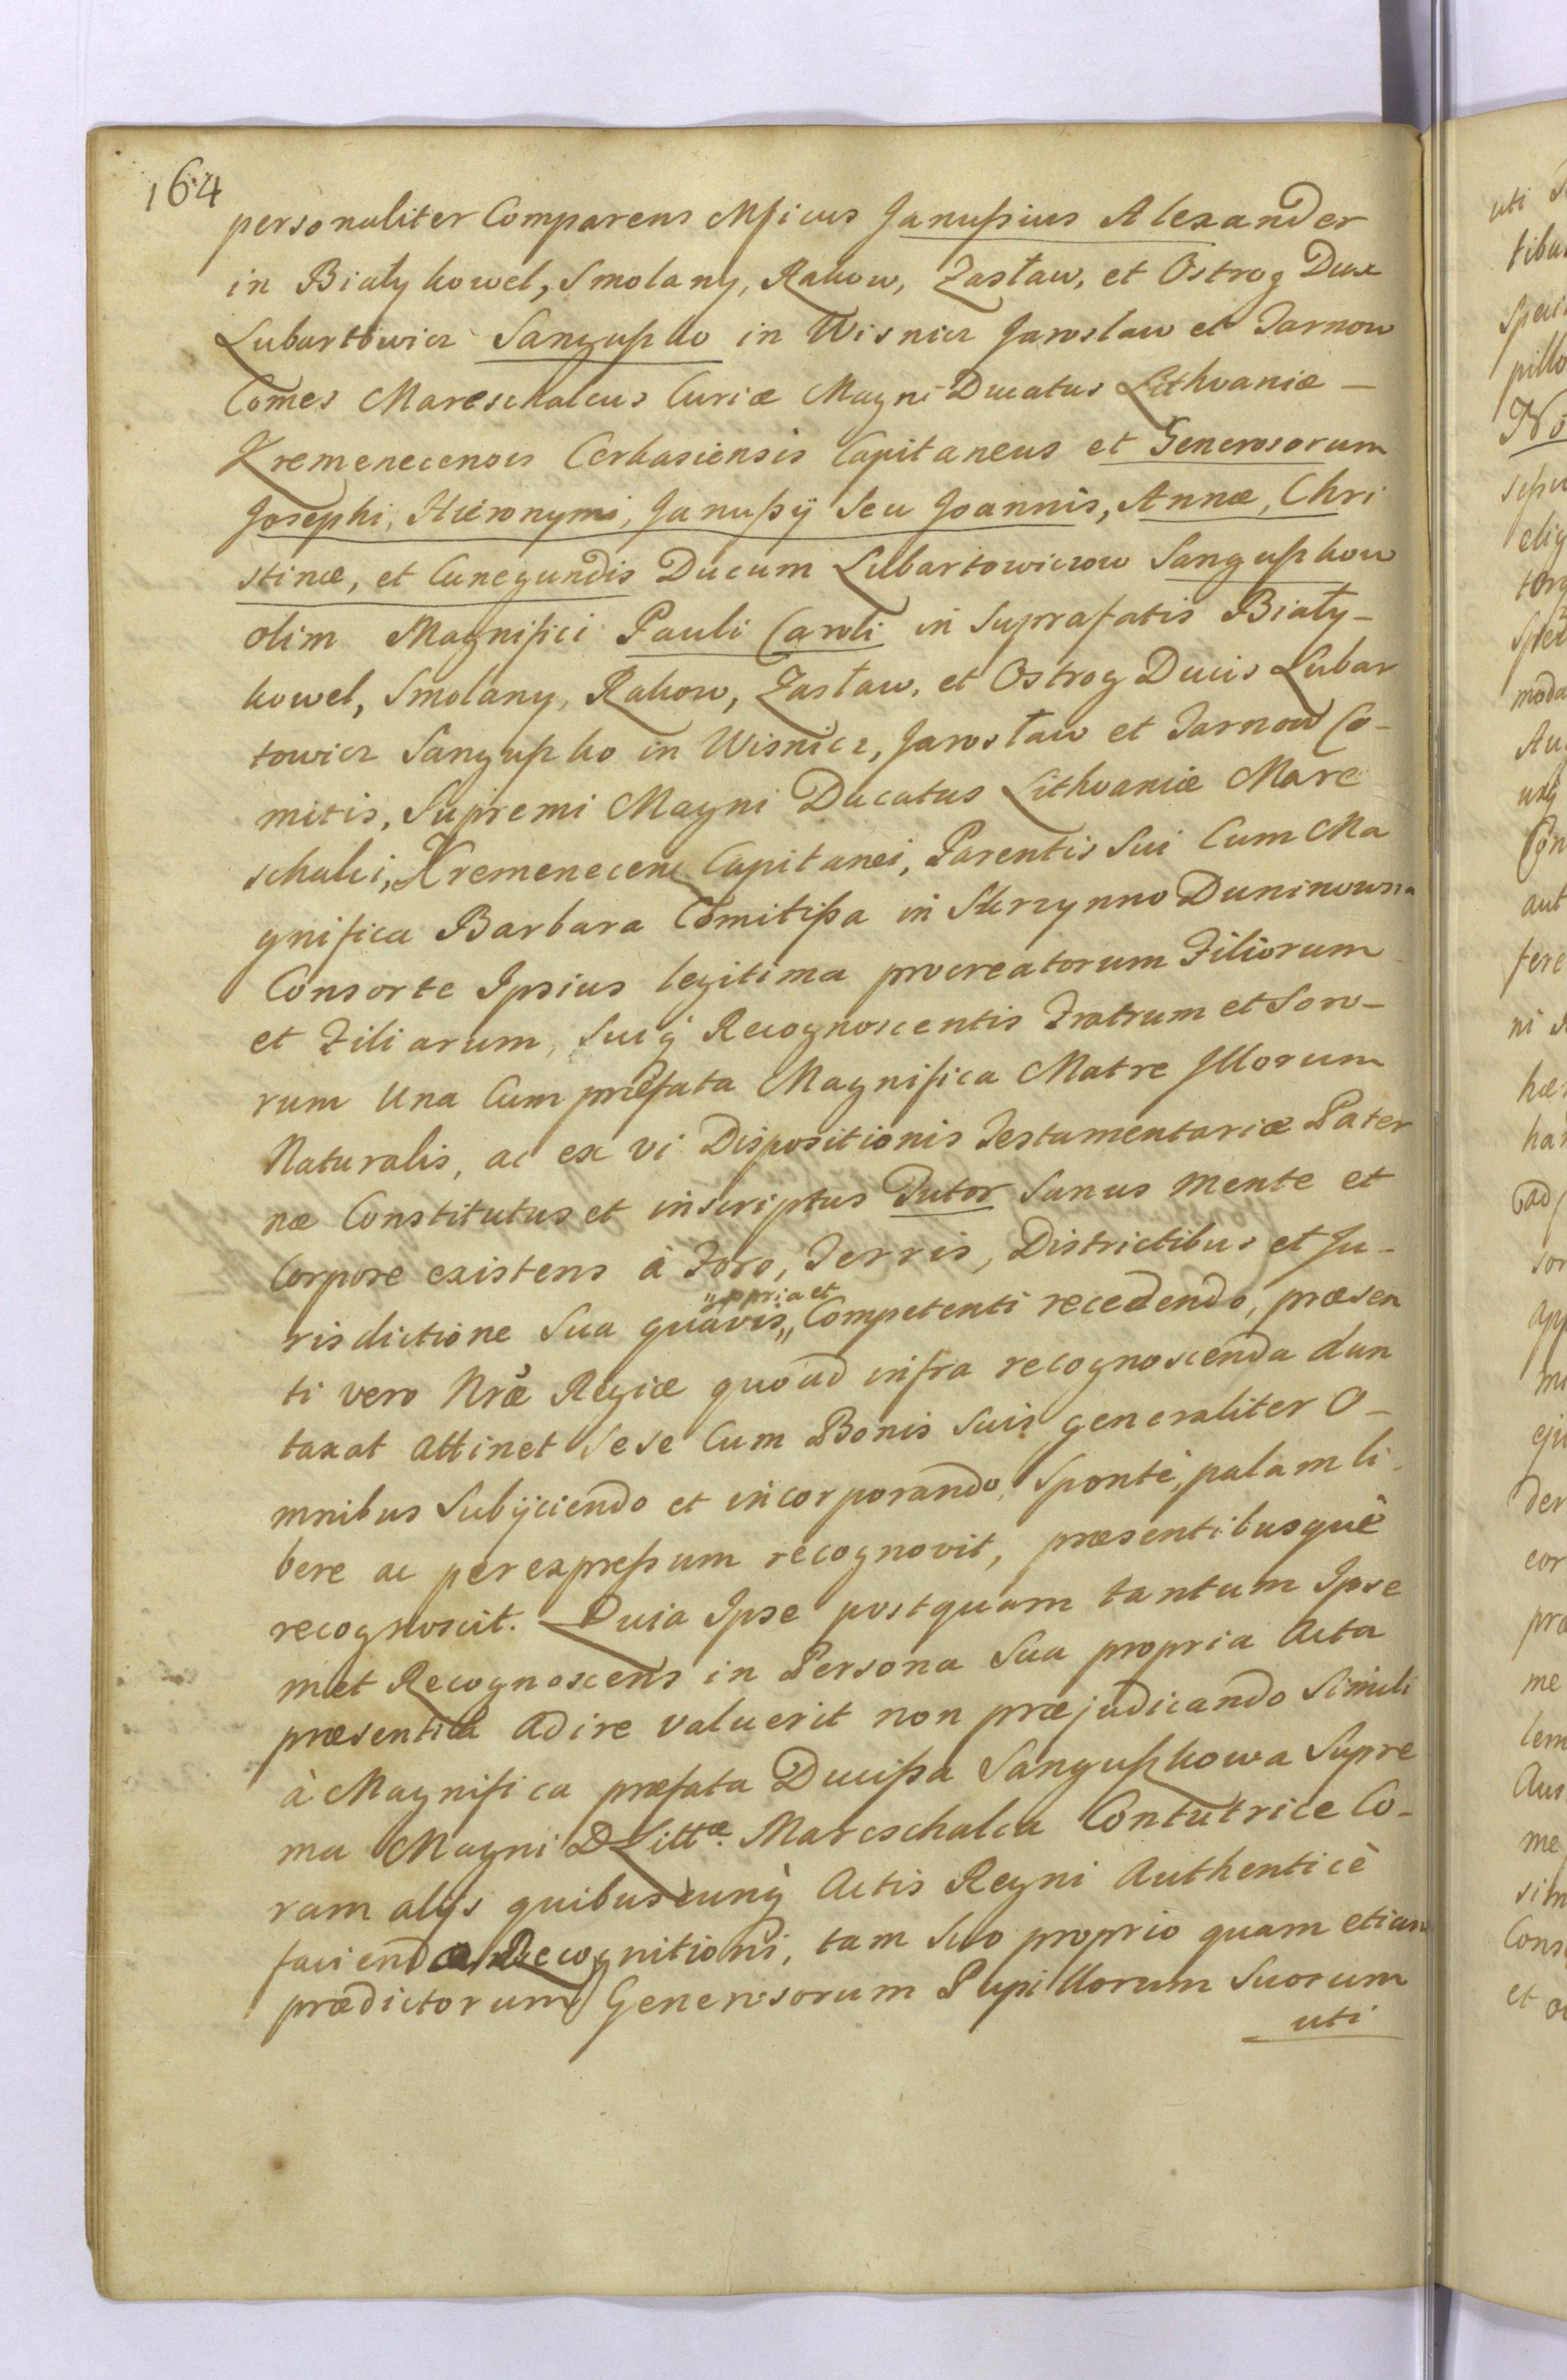 164
personaliter Comparens Mficus Janußius Alexander
in Biały kowel, Smolany, Rakow, Zasław, et Ostrog Dux
Lubartowicz Sangußko in Wisnicz Jaroslaw et Tarnow
Comes Mareschalcus Curiæ Magni Ducatus Lithvaniæ –
Kremenecensis Cerkasiensis Capitaneus et Generosorum
Josephi, Hieronymi, Janußÿ seu Joannis, Annæ, Chri
stinæ, et Cunegundis Ducum Lubartowiczow Sangußkow
olim Magnifici Pauli Caroli in suprafatis Biały-
kowel, Smolany, Rakow, Zasław, et Ostrog Ducis Lubar
towicz Sangußko in Wisnicz, Jarosław et Tarnow Co-
mitis, Supremi Magni Ducatus Lithvaniæ Mare
schalci, Kremenecen Capitanei, Parentis Sui Cum Ma
gnifica Barbara Comitißa in Skrzynno Duninowna
Consorte Ipsius legitima procreatorum Filiorum
et Filiarum, Suiq́ Recognoscentis Fratrum et Soro-
rum Una Cum præfata Magnifica Matre Illorum
Naturalis, ac ex vi Dispositionis Testamentariæ Pater
næ Constitutus et inscriptus Tutor Sanus Mente et
Corpore existens à Foro, Terris, Districtibus et Ju-
„ppria et
risdictione Sua quavis„ Competenti recedendo, præsen
ti vero Nræ Regiæ quoad infra recognoscenda dun
taxat attinet Sese Cum Bonis Suis generaliter O-
mnibus Subÿciendo et incorporando, Sponte, palam li-
bere ac per expreßum recognovit, præsentibusquè
recognoscit. Quia Ipse postquam tantum Ipse
met Recognoscens in Persona Sua propria Acta
præsentia Adire valuerit non præjudicando Simili
à Magnifica præfata Ducißa Sangußkowa Supre
ma Magni D Littæ. Mareschalca Contutrice Co-
ram alÿs quibuscunq̀ Actis Regni Authenticè
faciendæ Recognitioni, tam Suo proprio quam etiam
prædictorum Generosorum Pupillorum Suorum
uti